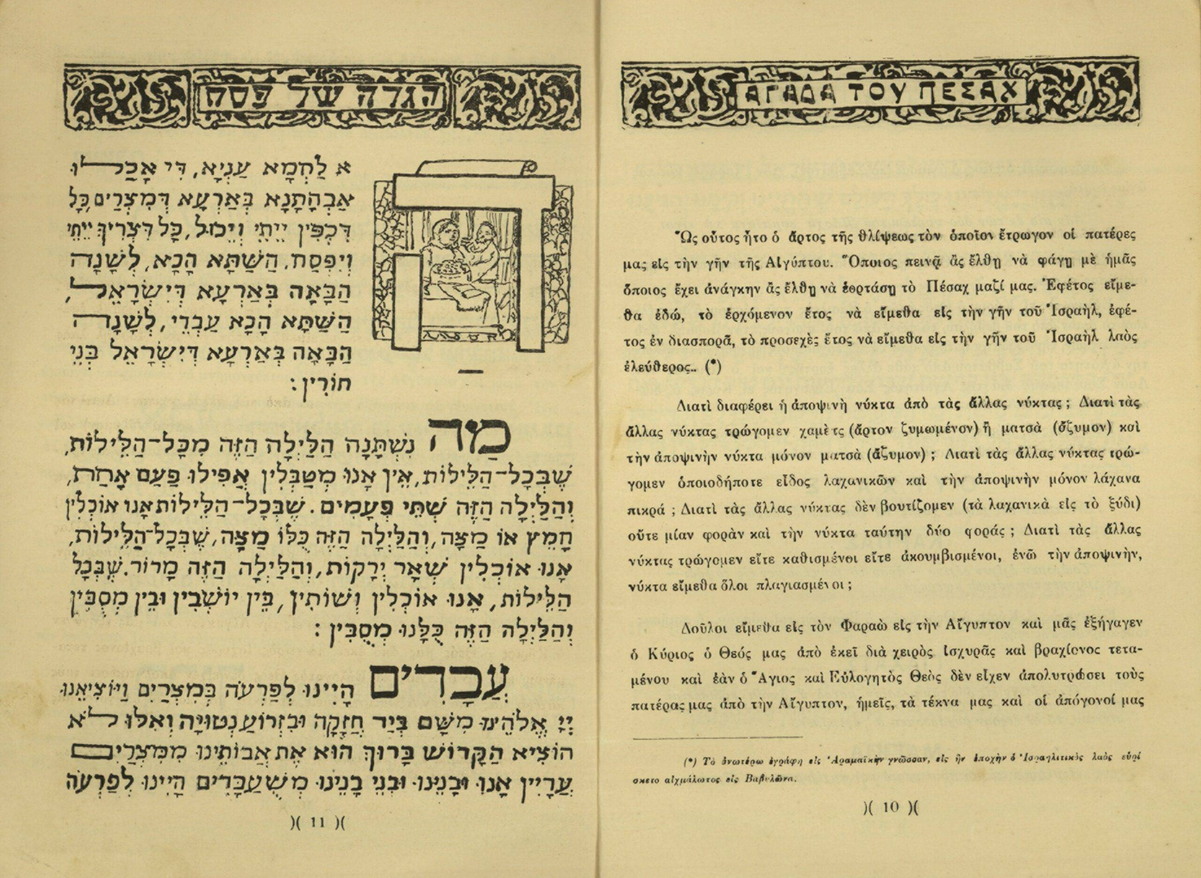 ΑΓΑΔΑ ΤΟΥ ΠΕΣΑΧ
Ὡς οὗτος ἦτο ὁ ἄρτος τῆς θλίψεως τὸν ὁποῖον ἔτρωγον οἱ πατέρες
μας εἰς τὴν γῆν τῆς Αἰγύπτου. Ὅποιος πεινᾷ ἄς ἔλθῃ νὰ φάγῃ μὲ ἡμᾶς
ὅποιος ἔχει ἀνάγκην ἄς ἔλθῃ νὰ ἑορτάσῃ τὸ Πέσαχ μαζί μας. Ἐφέτος εἴμε-
θα ἐδώ, τὸ ἐρχόμενον ἔτος νὰ εἴμεθα εἰς τὴν γῆν τοῦ Ἰσραήλ, ἐφέ-
τος ἐν διασπορᾷ, τὸ προσεχὲς ἔτος νὰ εἴμεθα εἰς τὴν γῆν τοῦ Ἰσραὴλ λαὸς
ἐλεύθερος.. (*)
Διατὶ διαφέρει ἡ ἀποψινὴ νύκτα ἀπὸ τὰς ἄλλας νύκτας ; Διατὶ τὰς
ἄλλας νύκτας τρώγομεν χαμὲτς (ἄρτον ζυμωμένον) ἢ ματσὰ (ἄζυμον) καὶ
τὴν ἀποψινὴν νύκτα μόνον ματσὰ (ἄζυμον) ; Διατὶ τὰς ἄλλας νύκτας τρώ-
γομεν ὁποιοδήποτε εἶδος λαχανικῶν καὶ τὴν ἀποψινὴν μόνον λάχανα
πικρά ; Διατὶ τὰς ἄλλας νύκτας δὲν βουτίζομεν (τὰ λαχανικὰ εἰς τὸ ξύδι)
οὔτε μίαν φορὰν καὶ τὴν νύκτα ταύτην δύο φοράς ; Διατὶ τὰς ἄλλας
νύκτας τρώγομεν εἴτε καθισμένοι εἴτε ἀκουμβισμένοι, ἐνῶ τὴν ἀποψινὴν,
νύκτα εἴμεθα ὅλοι πλαγιασμένοι ;
Δοῦλοι εἴμεθα εἰς τὸν Φαραὼ εἰς τὴν Αἴγυπτον καὶ μᾶς ἐξήγαγεν
ὁ Κύριος ὁ Θεός μας ἀπὸ ἐκεῖ διὰ χειρὸς ἰσχυρᾶς καὶ βραχίονος τετα-
μένου καὶ ἐὰν ὁ Ἅγιος καὶ Εὐλογητὸς Θεὸς δὲν εἶχεν ἀπολυτρώσει τοὺς
πατέρας μας ἀπὸ τὴν Αἴγυπτον, ἡμεῖς, τὰ τέκνα μας καὶ οἱ ἀπόγονοί μας
(*) Τὸ ἀνωτέρω ἐγράφη εἰς Ἀραμαϊκὴν γνῶσσαν, εἰς ἣν ἐποχὴν ὁ Ἰσραηλιτικὸς λαὸς εὑρί
σκετο αἰχμάλωτος εἰς Βαβυλῶνα.
)( 10 )(
הגדה של פסח
הא לַחְמָא עַנְיָא, דִּי אֲכָלוּ
אַבְהָתָנָא בְּאַרְעָא דְּמִצְרַיִם, כָּל
דִּכְפִין יֵיתֵי וְיֵכוֹל, כָּל דִּצְרִיךְ יֵיתֵי
וְיִפְסַח. הַשַּׁתָּא הָכָא, לְשָׁנָה
הַבָּאָה בְּאַרְעָא דְּיִשְׂרָאֵל,
הַשַּׁתָּא הָכָא עַבְדֵי, לְשָׁנָה
הַבָּאָה בְּאַרְעָא דְּיִשְׂרָאֵל בְּנֵי
חוֹרִין:
מַה נִשְׁתַּנָה הַלַּיְלָה הַזֶּה מִכָּל־הַלֵּילוֹת,
שֶׁבְּכָל־הַלֵּילוֹת, אֵין אָנוּ מְטַבְּלִין אֲפִילוּ פַּעַם אֶחָת,
וְהַלַּיְלָה הַזֶּה שְׁתֵּי פְּעָמִים. שֶׁבְּכָל־הַלֵּילוֹת אָנוּ אוֹכְלִין
חָמֵץ אוֹ מַצָּה, וְהַלַּיְלָה הַזֶּה כֻּלּוֹ מַצָּה, שֶׁבְּכָל־הַלֵּילוֹת,
אָנוּ אוֹכְלִין שְׁאָר יְרָקוֹת, וְהַלַּיְלָה הַזֶּה מָרוֹר. שֶׁבְּכָל
הַלֵּילוֹת, אָנוּ אוֹכְלִין וְשׁוֹתִין, בֵּין יוֹשְׁבִין וּבֵין מְסֻבִּין
וְהַלַּיְלָה הַזֶּה כֻּלָּנוּ מְסֻבִּין :
עֲבָדִים הָיִינוּ לְפַרְעֹה בְּמִצְרַיִם וַיּוֹצִיאֵנוּ
יְיָ אֱלֹהֵינוּ מִשָּׁם בְּיַד חֲזָקָה וּבִזְרוֹעַ נְטוּיָה וְאִלּוּ לֹא
הוֹצִיא הַקָּדוֹשׁ בָּרוּךְ הוּא אֶת אֲבוֹתֵינוּ מִמִּצְרַיִם
עֲדַיִין אָנוּ וּבָנֵינוּ וּבְנֵי בָנֵינוּ מְשֻׁעֲבָּדִים הָיִינוּ לְפַרְעֹה
)( 11 )(